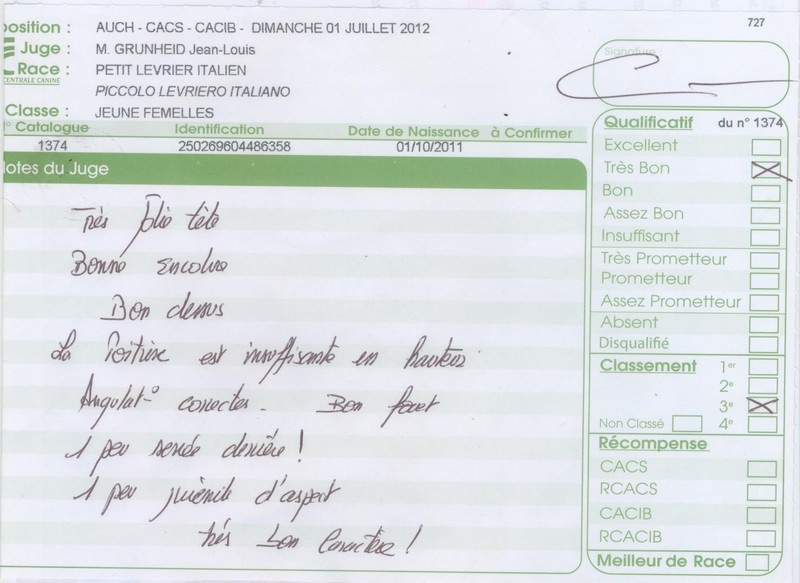 position : AUCH - CACS - CACIB - DIMANCHE 01 JUILLET 2012
727
Juge : M. GRUNHEID Jean-Louis
Race : PETIT LEVRIER ITALIEN
CENTRALE CANINE
PICCOLO LEVRIERO ITALIANO
Classe : JEUNE FEMELLES
Signature :
N° Catalogue Identification Date de Naissance à Confirmer
1374 250269604486358 01/10/2011
Notes du Juge
Très Jolie tête
Bonne encolure
Bon dessus
La Poitrine est insuffisante en hauteur
Angulat° correctes. Bon fouet
1 peu serrée derrière !
1 peu juvénile d'aspect
très bon Caractère !
Qualificatif du n° 1374
Excellent
Très Bon
Bon
Assez Bon
Insuffisant
Très Prometteur
Prometteur
Assez Prometteur
Absent
Disqualifié
Classement 1er
2e
3e
Non Classé 4e
Récompense
CACS
RCACS
CACIB
RCACIB
Meilleur de Race